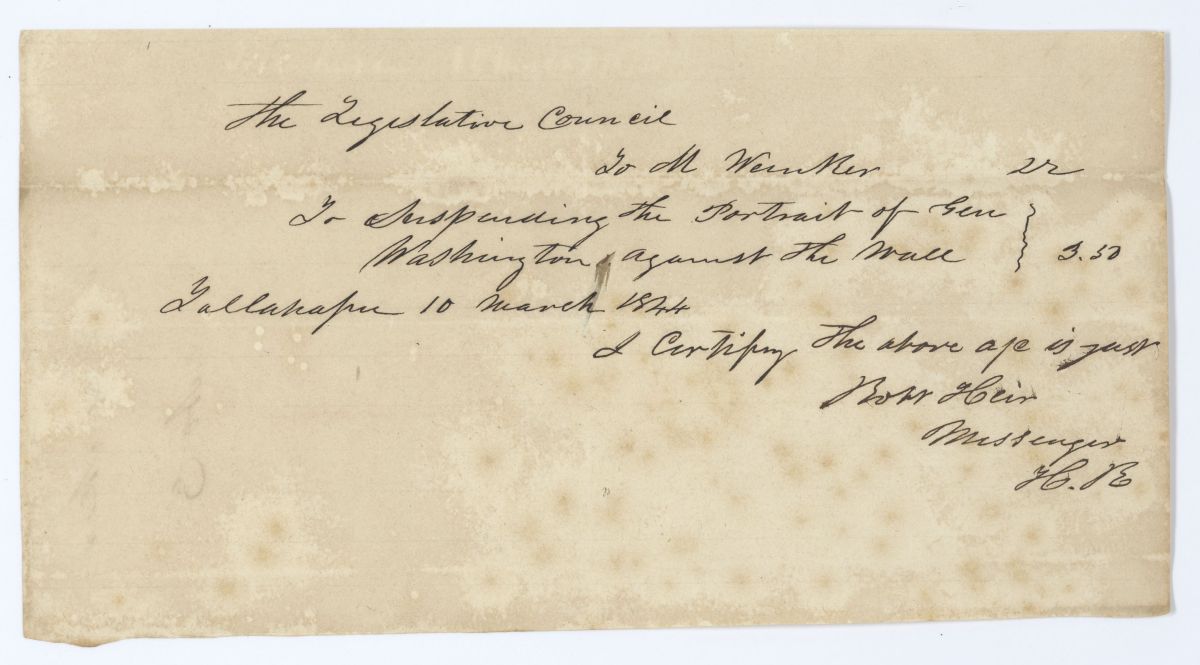 The Legislative Council
To M Weinker Dr
To Suspending the Portrait of Gen
Washington against the Wall } 3.50
Tallahassee 10 March 1844
I Certify the above a/c is just
Robt Heir
Messenger
H. R